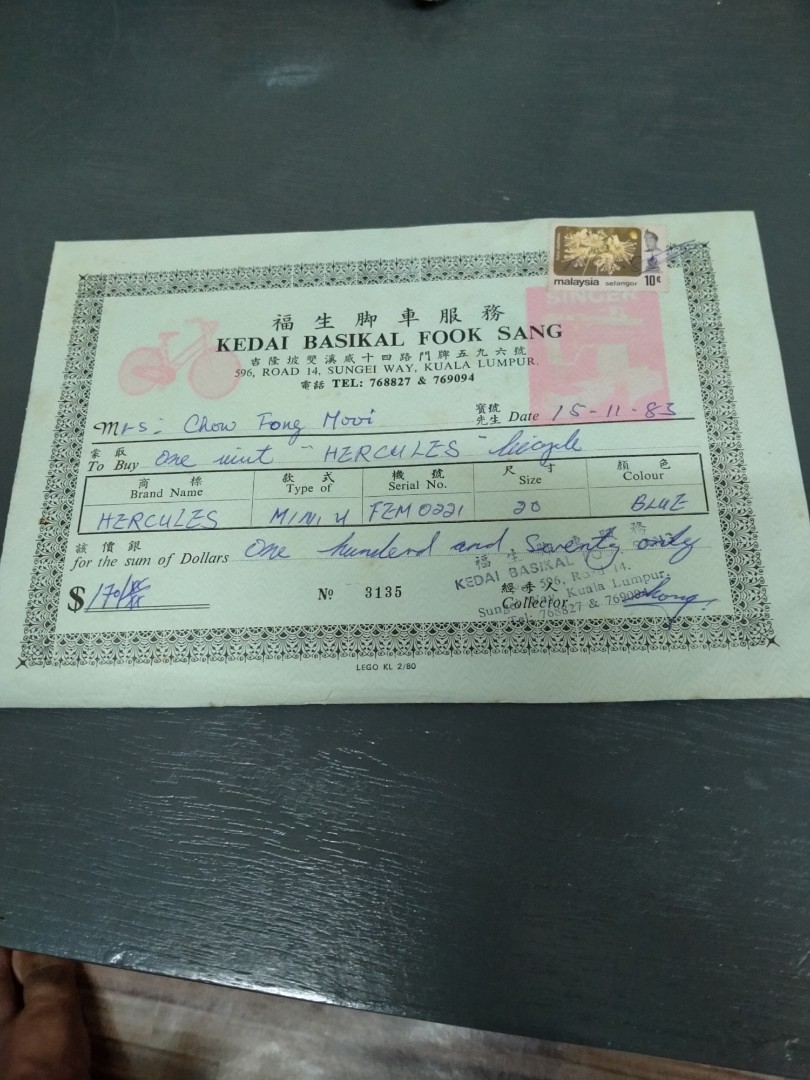 malaysia selangor 10¢
SINGER
福生脚車服務
KEDAI BASIKAL FOOK SANG
吉隆坡雙溪威十四路門牌五九六號
596, ROAD 14, SUNGEI WAY, KUALA LUMPUR.
電話 TEL: 768827 & 769094
Mrs: Chow Fong Mooi 寶號 先生 Date 15-11-83
蒙 厰
To Buy One unit "HERCULES" bicycle
商標 款式 機號 尺寸 顏色
Brand Name Type of Serial No. Size Colour
HERCULES MINI 4 FZM0221 20 BLUE
該價銀
for the sum of Dollars One hundred and Seventy only
福生
KEDAI BASIKAL
596, Road 14.
Sungei Way, Kuala Lumpur.
Tel: 768827 & 769094
$ 170/xx Nº 3135 經手人
Collector
LEGO KL 2/80